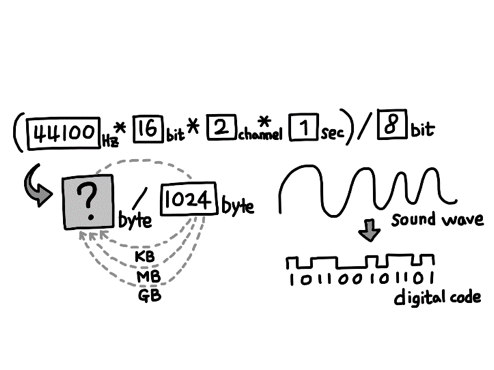 (44100Hz * 16bit * 2channel * 1sec) / 8bit
? byte / 1024 byte
KB
MB
GB
sound wave
101100101101
digital code